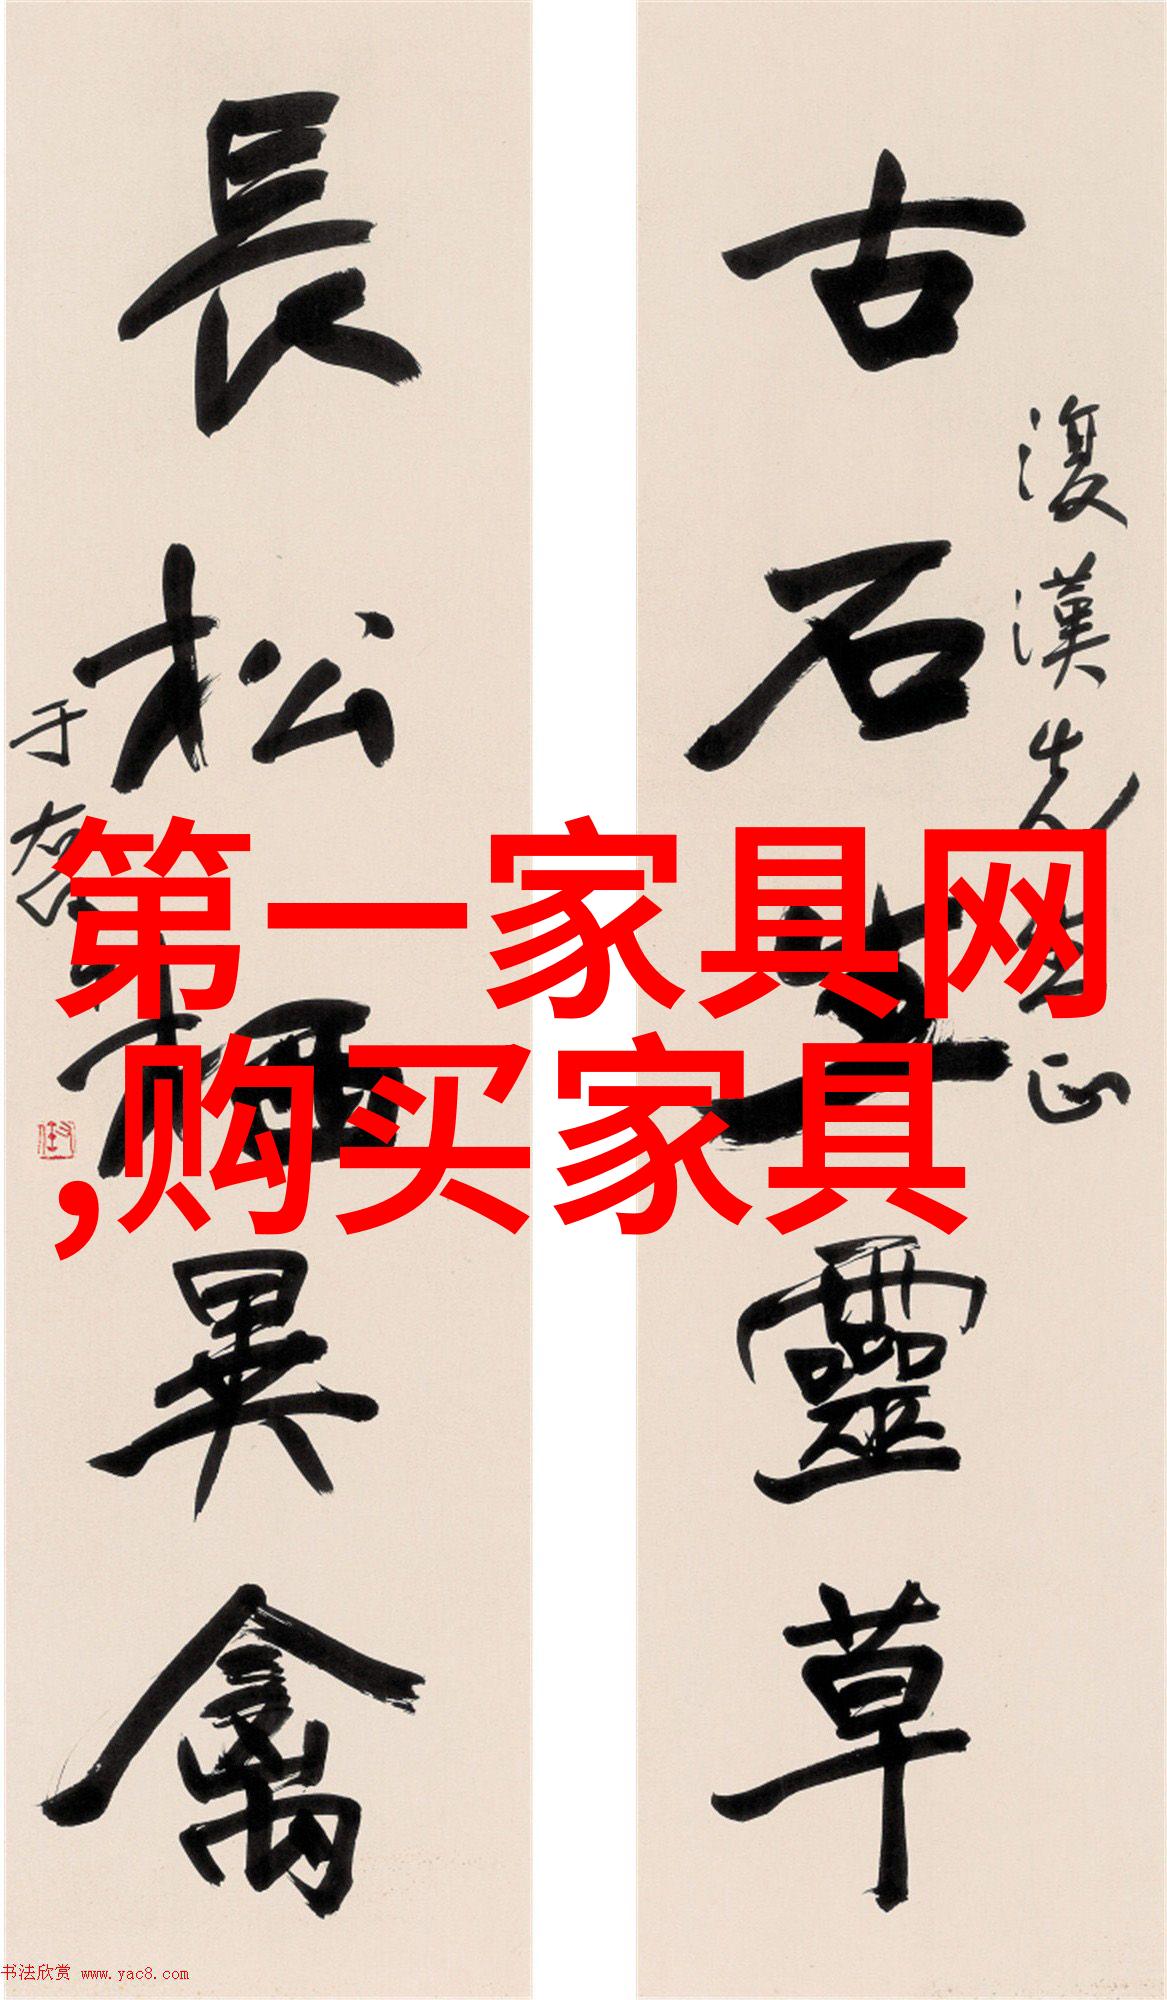 古石生靈草
復漢先生正
長松栖異禽
于右任
第一家具网
,购买家具
书法欣赏 www.yac8.com